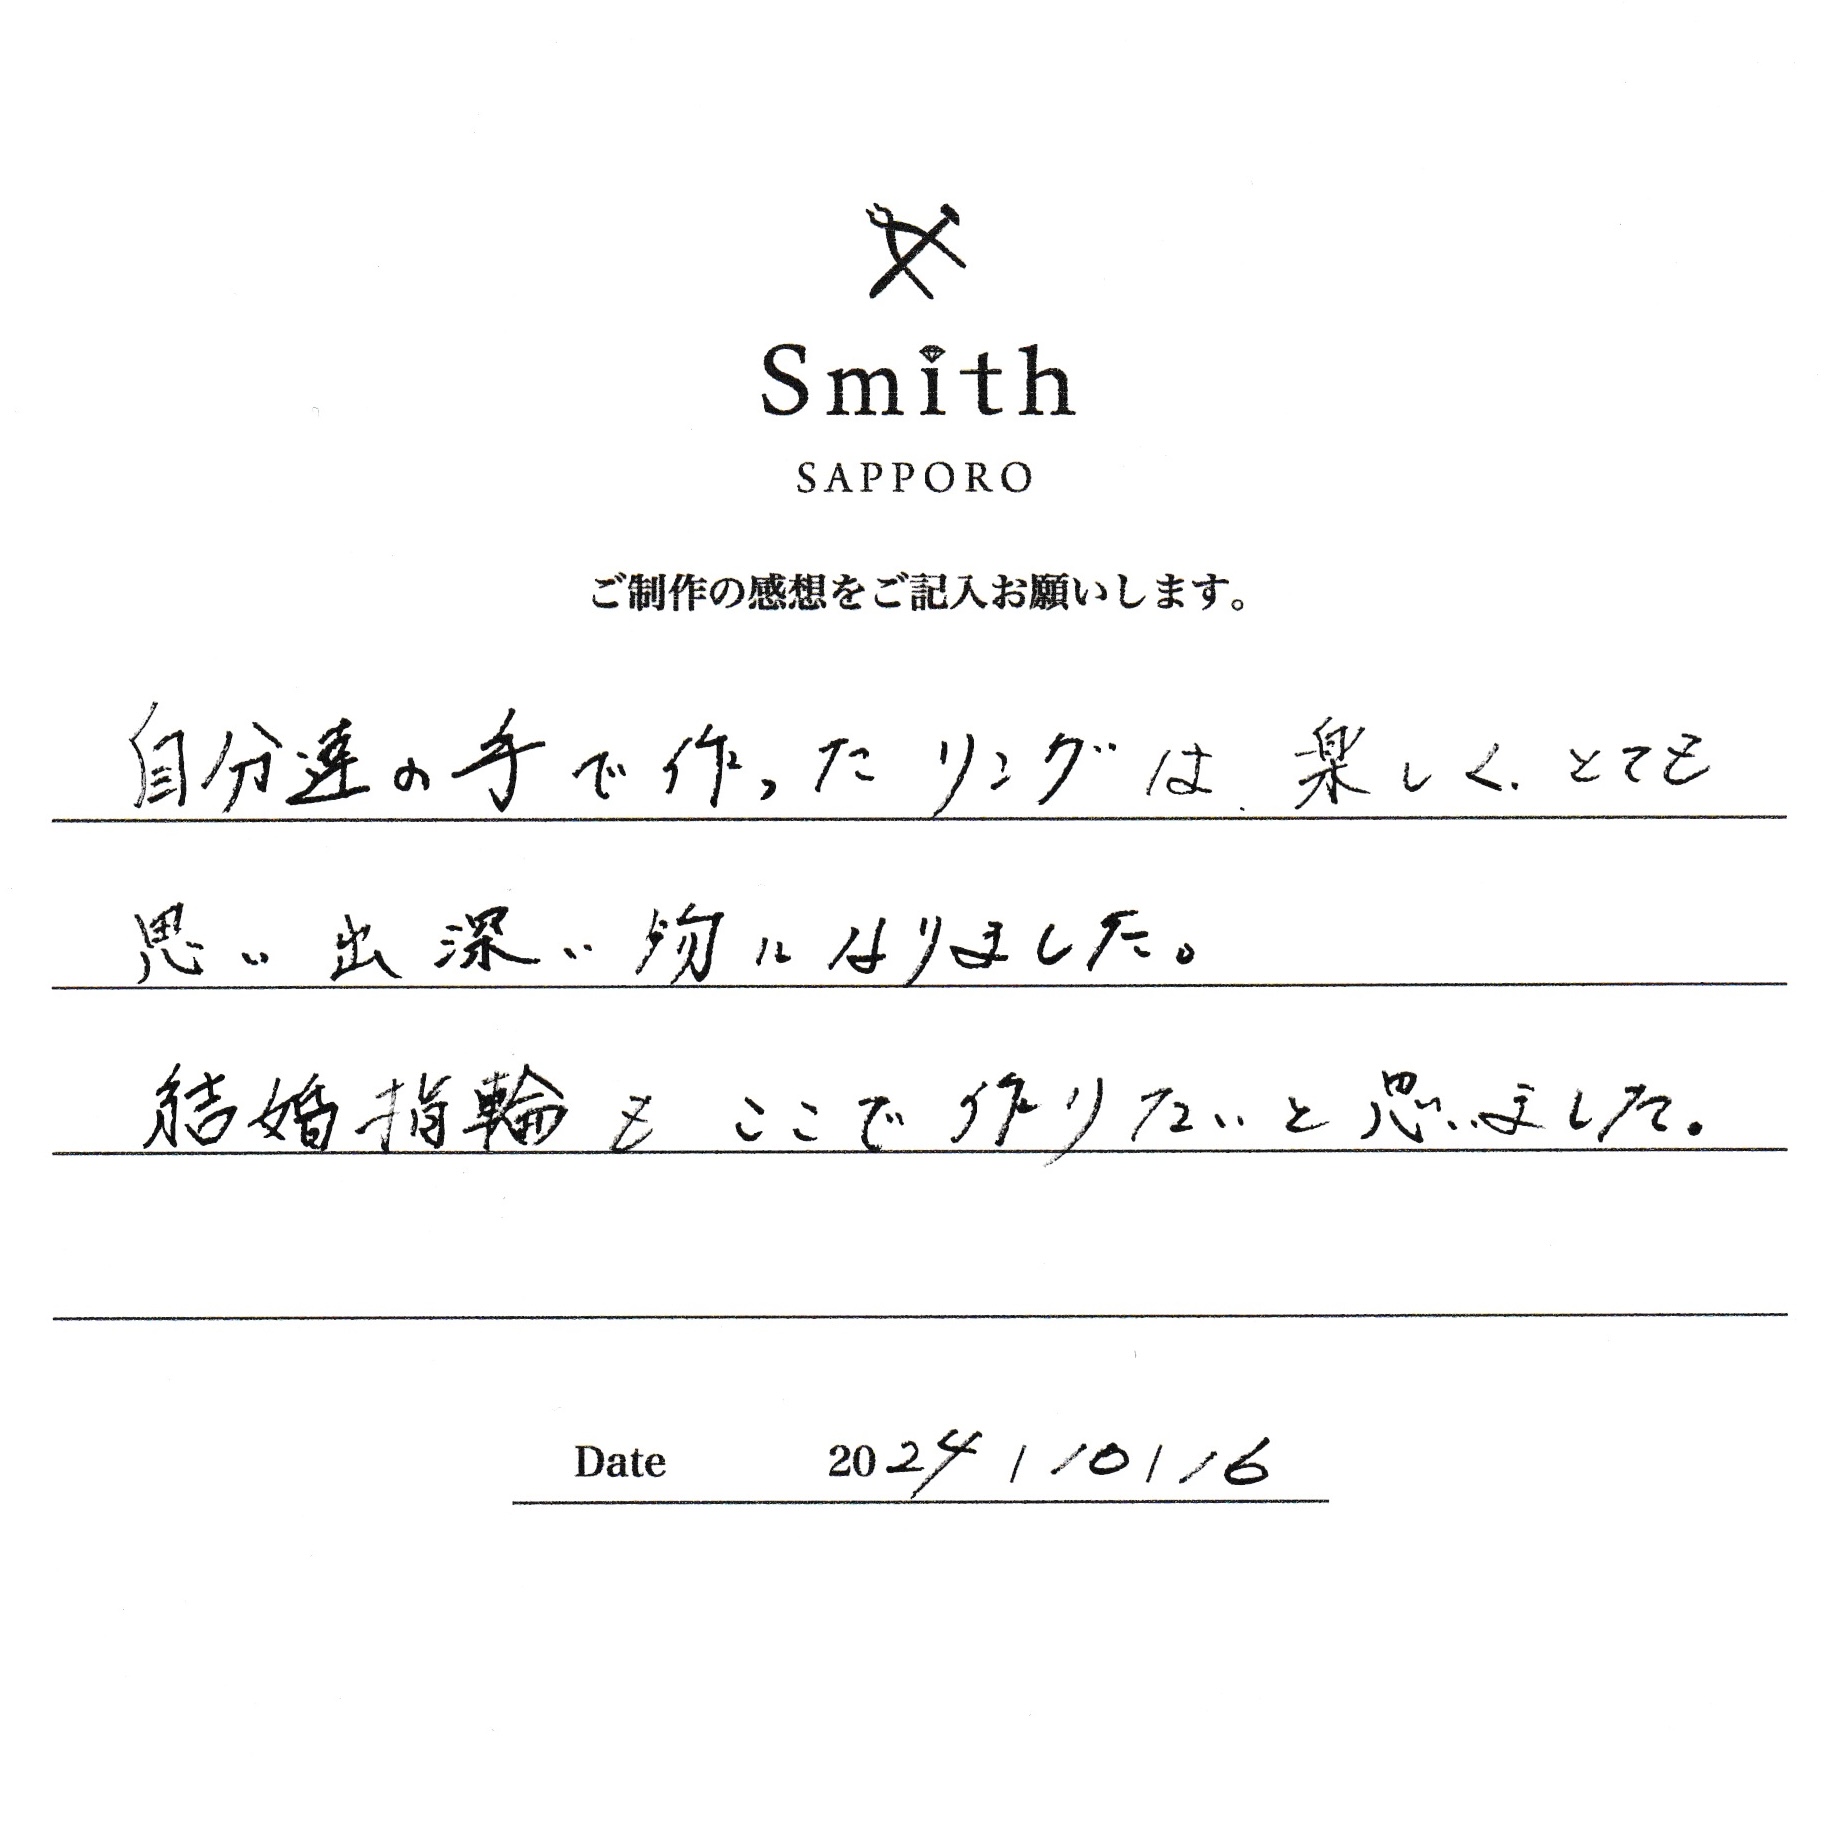 Smith
SAPPORO
ご制作の感想をご記入お願いします。
自分達の手で作ったリングは、楽しく、とても
思い出深い物になりました。
結婚指輪も ここで作りたいと思いました。
Date 2024/10/16